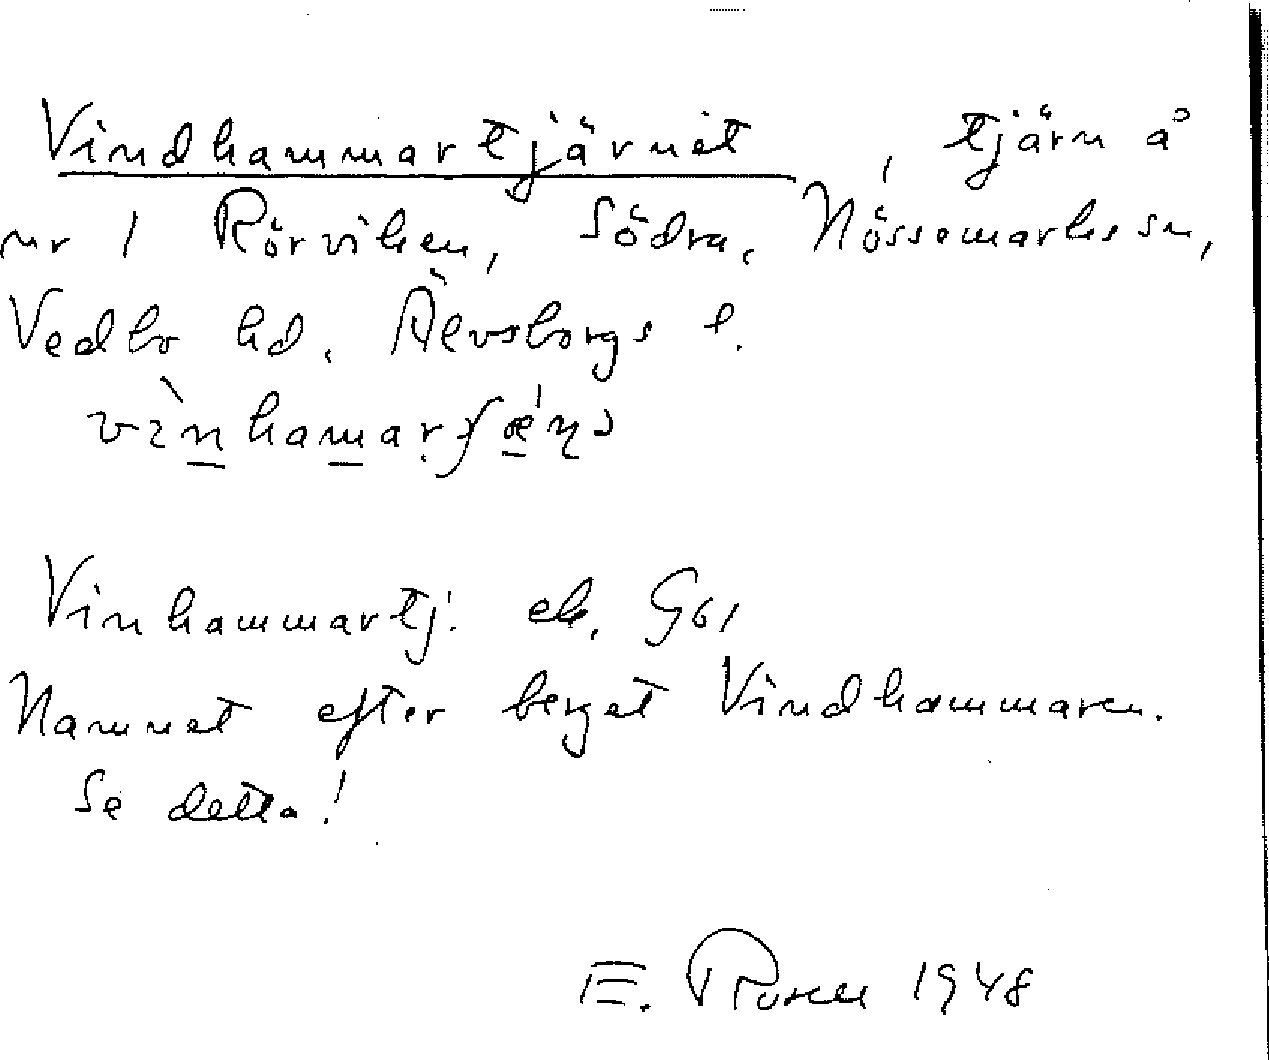 Vindhammartjärnet, tjärn å
nr 1 Rörviken, Södra, Nössemarks sn,
Vedbo hd. Älvsborgs l.
Vinhammartj. ek. G61
Namnet efter berget Vindhammaren.
Se detta!
E. Rosell 1948